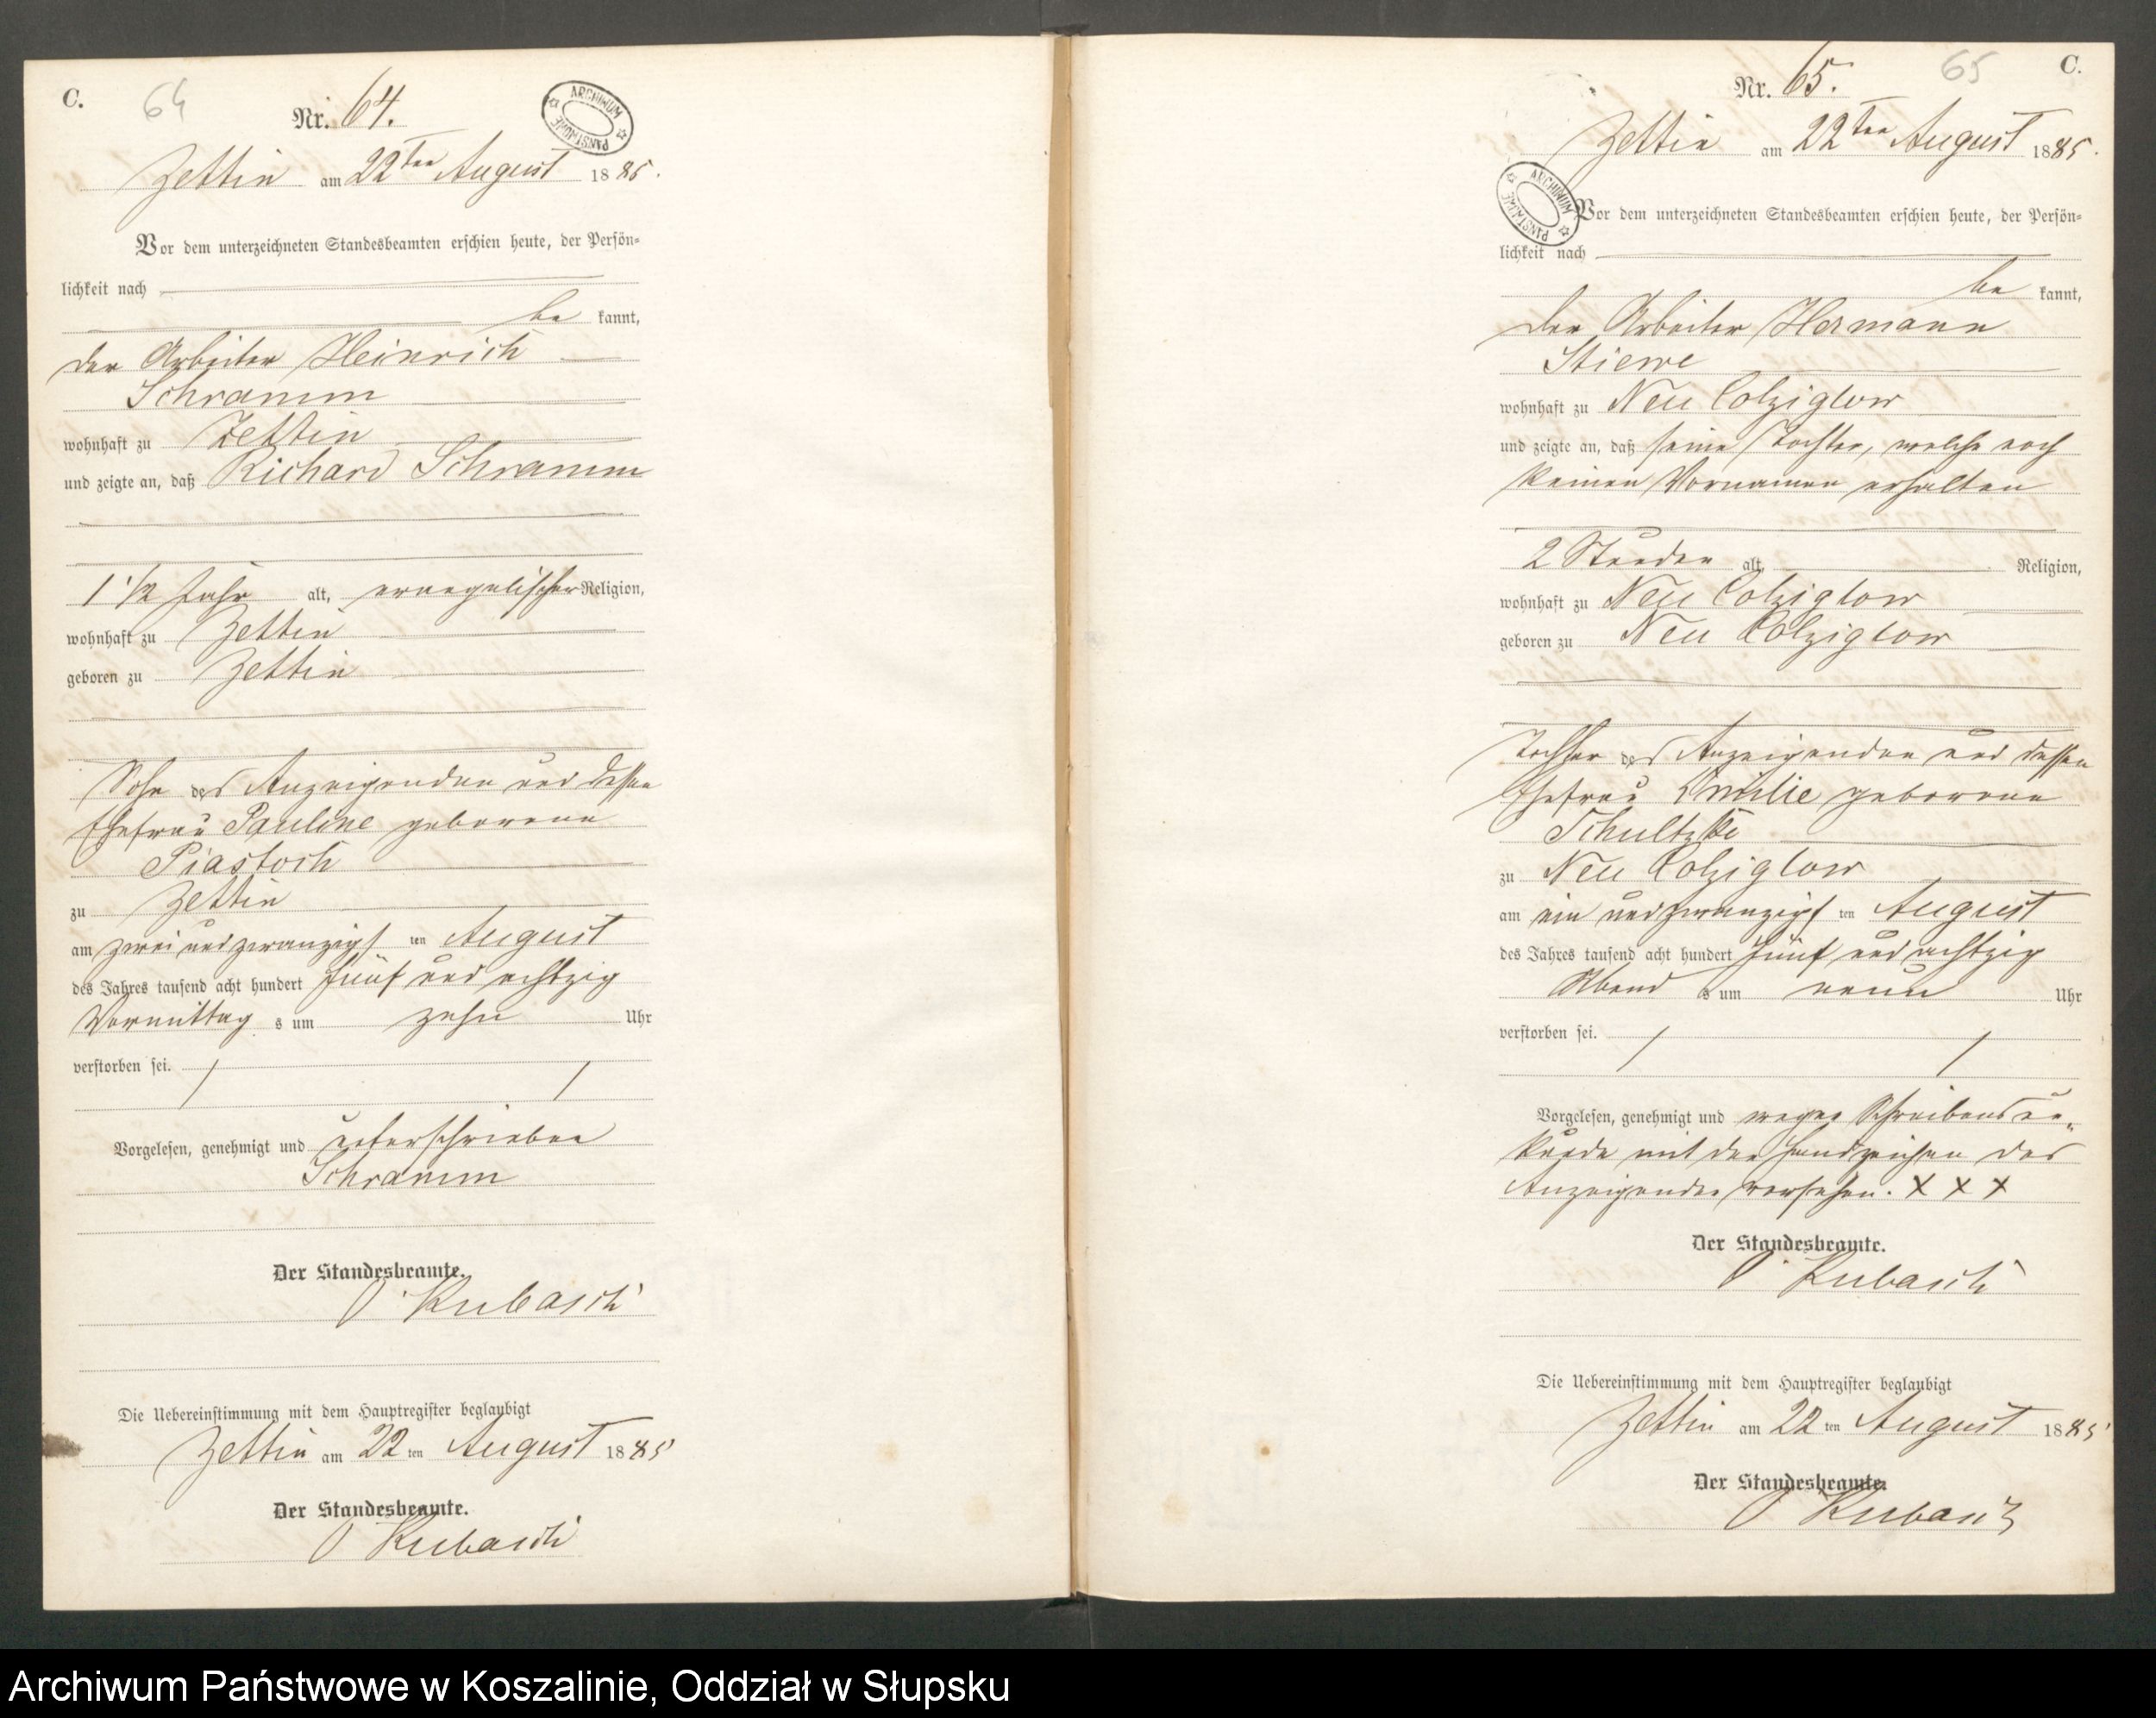 C.
64
Nr. 64.
ARCHIWUM PAŃSTWOWE
Zettin am 22ten August 1885.
Vor dem unterzeichneten Standesbeamten erschien heute, der Persön=
lichkeit nach
be kannt,
der Arbeiter Heinrich
Schramm
wohnhaft zu Zettin
und zeigte an, daß Richard Schramm
1 1/2 Jahr alt, evangelischer Religion,
wohnhaft zu Zettin
geboren zu Zettin
Sohn des Anzeigenden und dessen
Ehefrau Pauline geborene
Piastoch
zu Zettin
am zwei und zwanzigsten August
des Jahres tausend acht hundert fünf und achtzig
Vormittag s um zehn Uhr
verstorben sei.
Vorgelesen, genehmigt und unterschrieben
Schramm
Der Standesbeamte.
Kubasch
Die Uebereinstimmung mit dem Hauptregister beglaubigt
Zettin am 22 ten August 1885
Der Standesbeamte.
Kubasch
65 C.
Nr. 65.
Zettin am 22ten August 1885.
ARCHIWUM PAŃSTWOWE
Vor dem unterzeichneten Standesbeamten erschien heute, der Persön=
lichkeit nach
be kannt,
der Arbeiter Hermann
Stiewe
wohnhaft zu Neu Colziglow
und zeigte an, daß seine Tochter, welche noch
keinen Vornamen erhalten
2 Stunden alt, Religion,
wohnhaft zu Neu Colziglow
geboren zu Neu Colziglow
Tochter des Anzeigenden und dessen
Ehefrau Emilie geborene
Schultzki
zu Neu Colziglow
am ein und zwanzigsten August
des Jahres tausend acht hundert fünf und achtzig
Abend s um neun Uhr
verstorben sei.
Vorgelesen, genehmigt und wegen Schreibensun=
kunde mit den Handzeichen des
Anzeigenden versehen. X X X
Der Standesbeamte.
Kubasch
Die Uebereinstimmung mit dem Hauptregister beglaubigt
Zettin am 22 ten August 1885
Der Standesbeamte.
Kubasch
Archiwum Państwowe w Koszalinie, Oddział w Słupsku